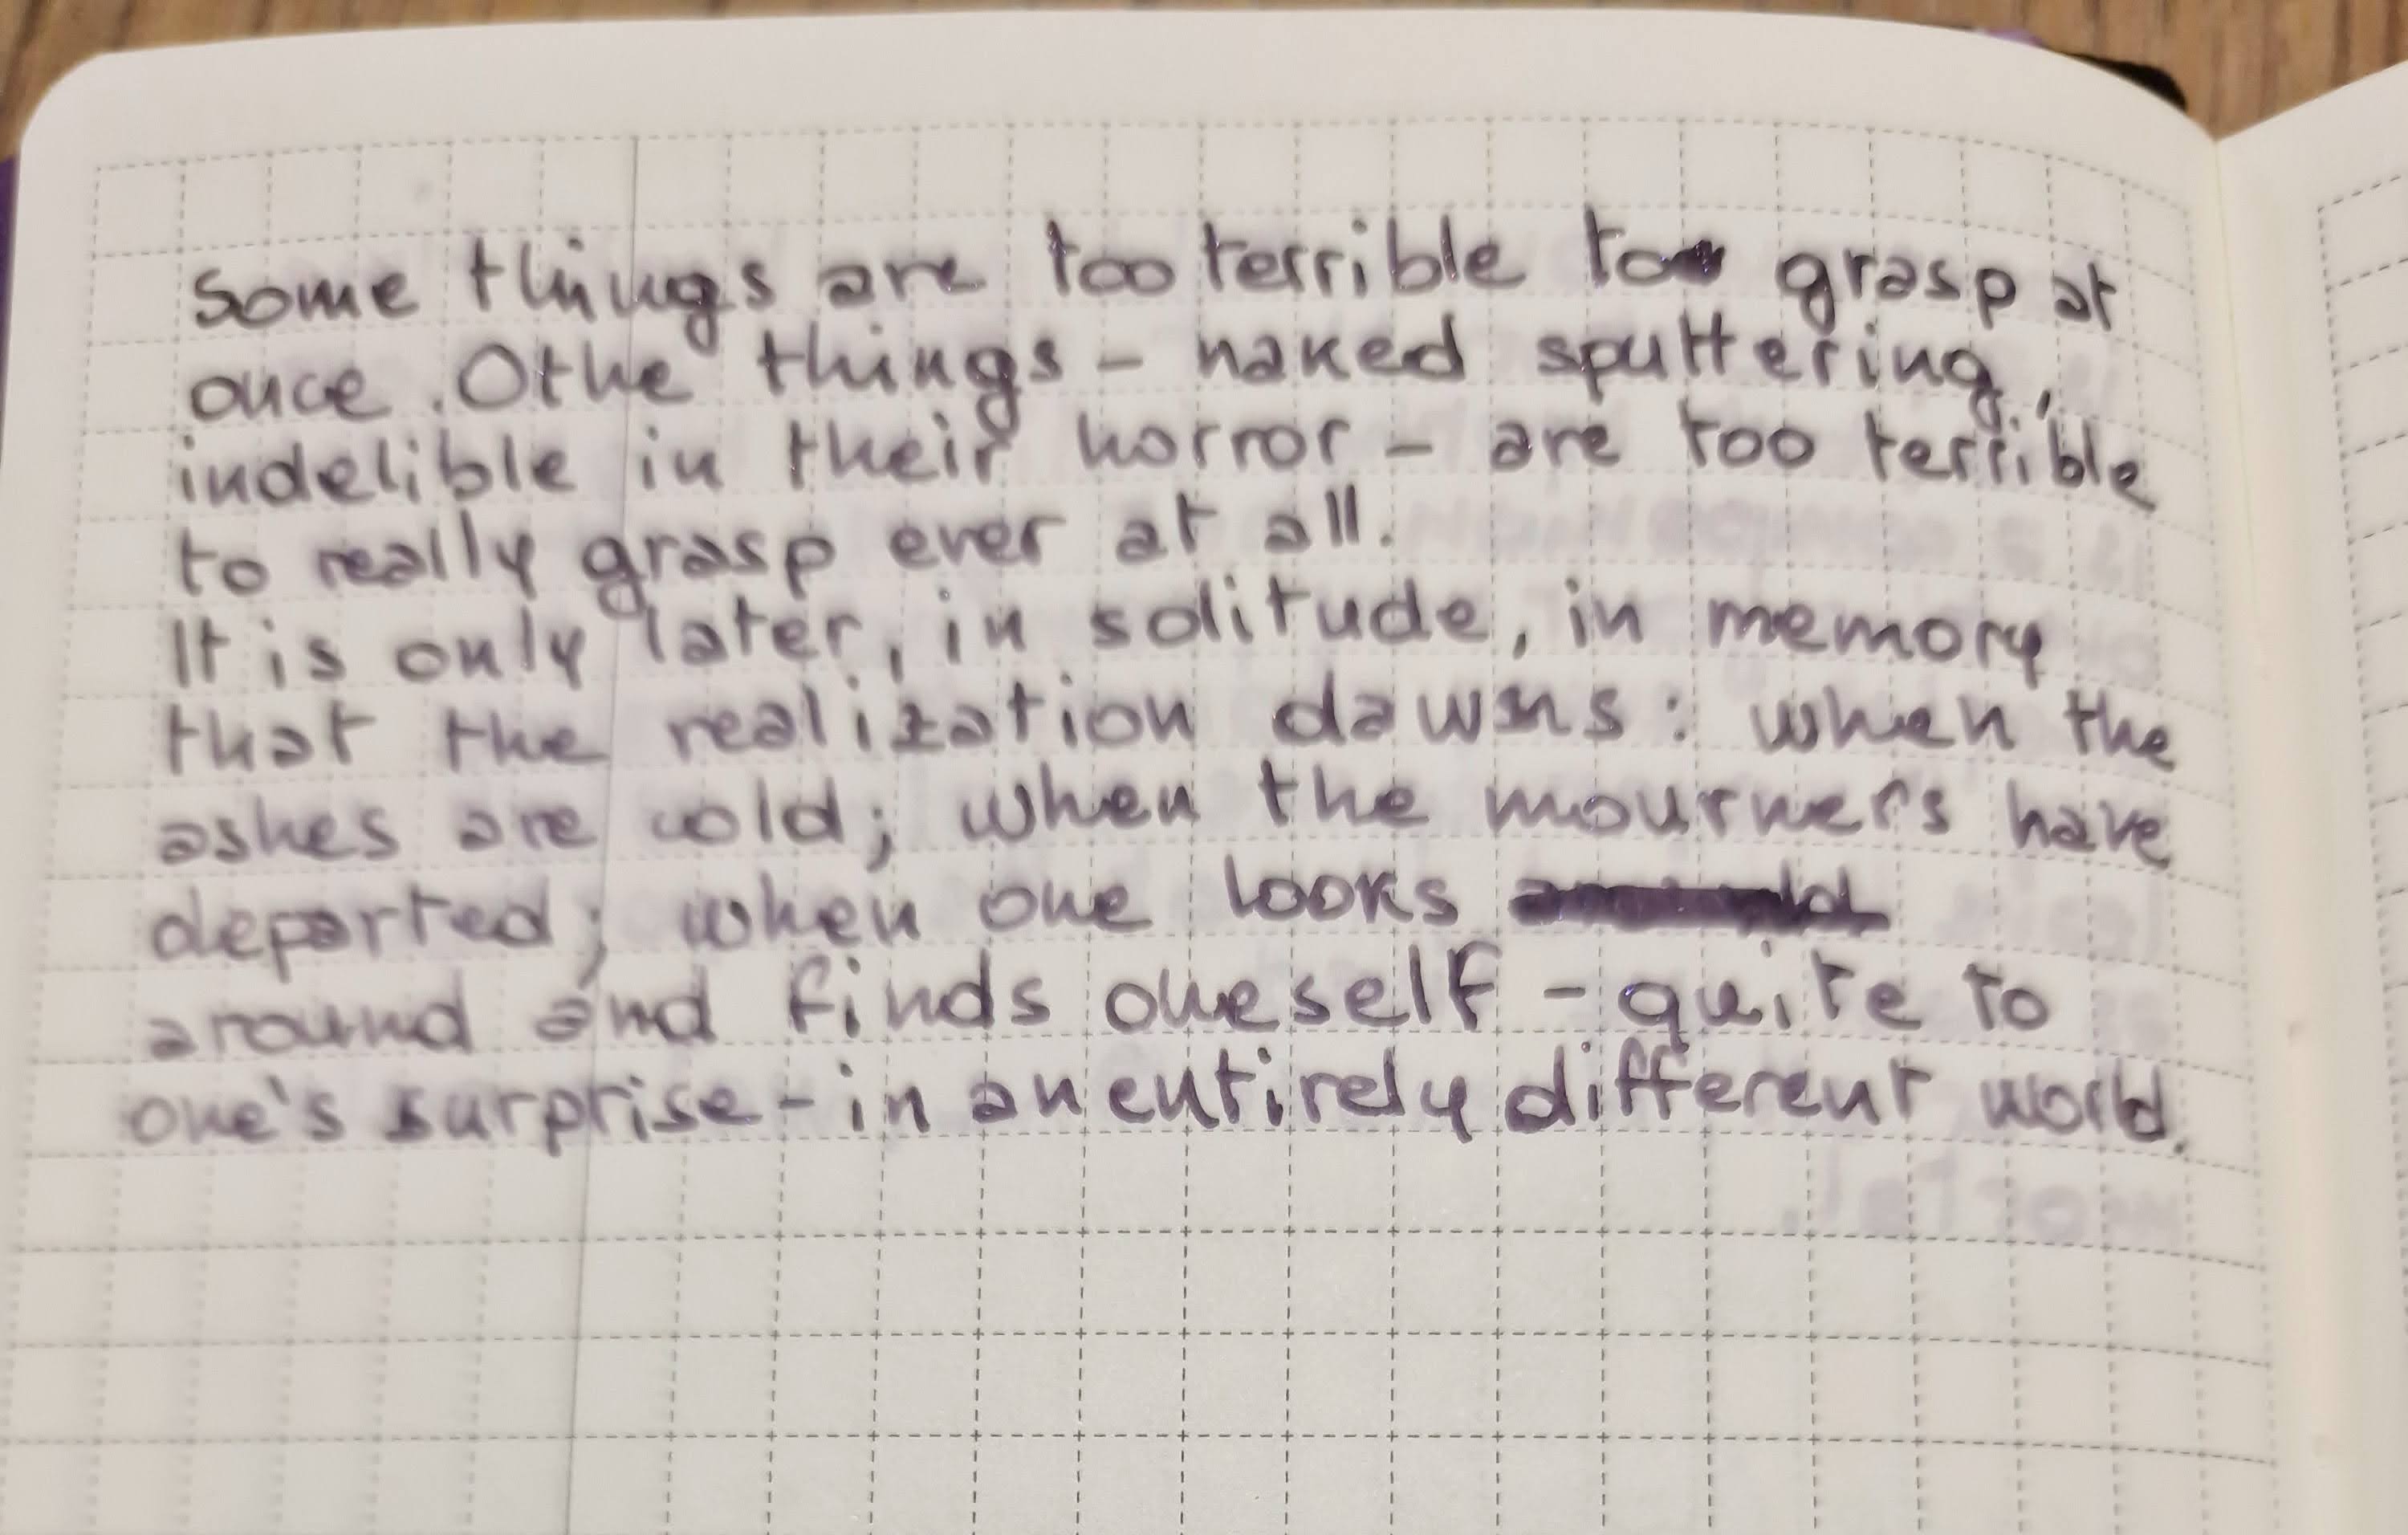 Some things are too terrible to grasp at
once. Othe things - naked sputtering,
indelible in their horror - are too terrible
to really grasp ever at all.
It is only later, in solitude, in memory
that the realization dawns: when the
ashes are cold; when the mourners have
departed; when one looks
around and finds oneself - quite to
one's surprise - in an entirely different world.